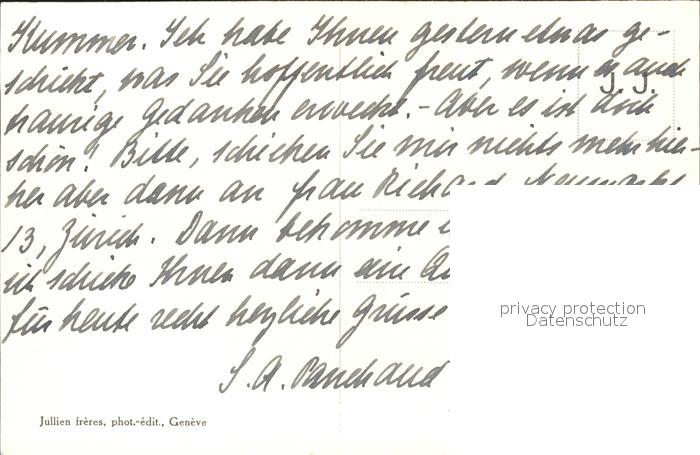 Kummer. Ich habe Ihnen gestern etwas ge-
schickt, was Sie hoffentlich freut, wenn es auch
J. J.
traurige Gedanken erweckt. - Aber es ist doch
schön! Bitte, schicken Sie mir nichts mehr hie-
her aber dann an Frau Richard, Neumarkt
13, Zürich. Dann bekomme
ich schicke Ihnen dann ein
für heute recht herzliche Grüsse
S. A. Panchaud
privacy protection
Datenschutz
Jullien frères, phot.-édit., Genève